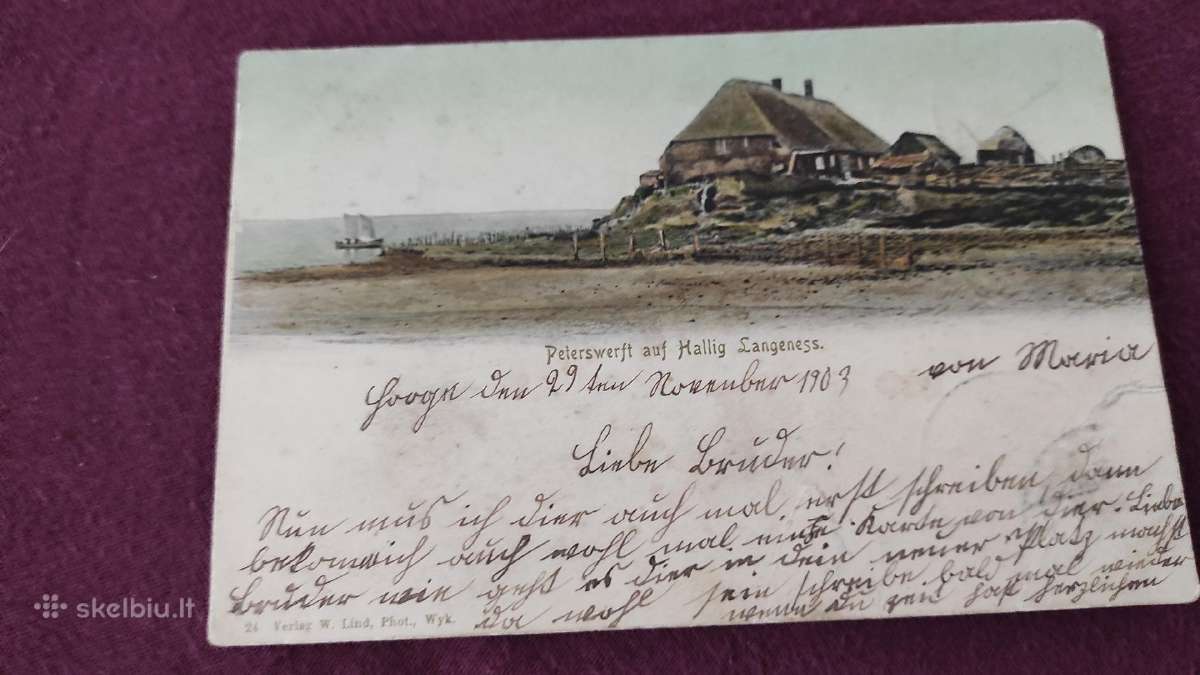 Peterswerft auf Hallig Langeness.
Hooge den 29ten November 1903 von Maria
Liebe Bruder!
Nun mus ich dier auch mal erst schreiben dann
bekom ich auch wohl mal eine Karte von dier. Liebe
Bruder wie geht es dier in dein neuer Platz machst
da wohl sein schreibe bald mal wieder
wenn du zeit hast herzlichen
24 Verlag W. Lind, Phot., Wyk.
skelbiu.lt